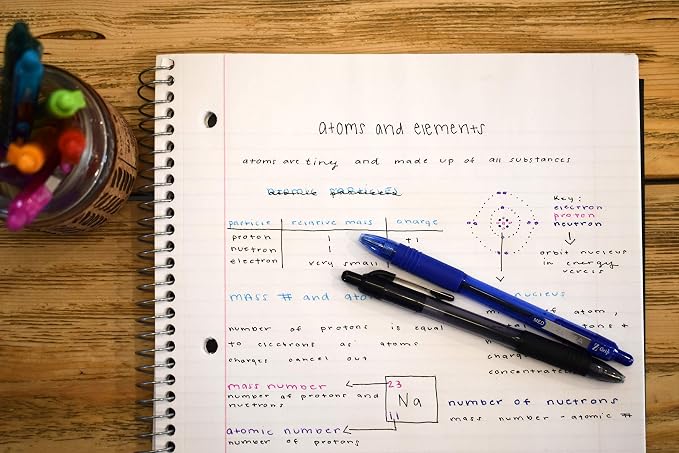 atoms and elements
atoms are tiney and made up of all substances
atomic particles
particle relative mass charge
proton 1 +1
nuetron 1
electron very small
Key:
electron
proton
neutron
orbit nucleus
in energy
MASS # and
nucleus
of atom,
number of protons is equal
to electrons as atoms
charges cancel out
concentrated
mass number
number of protons and
nuetrons
23
Na
11
number of nuetrons
mass number - atomic #
atomic number
number of protons
MED
Z-Grip